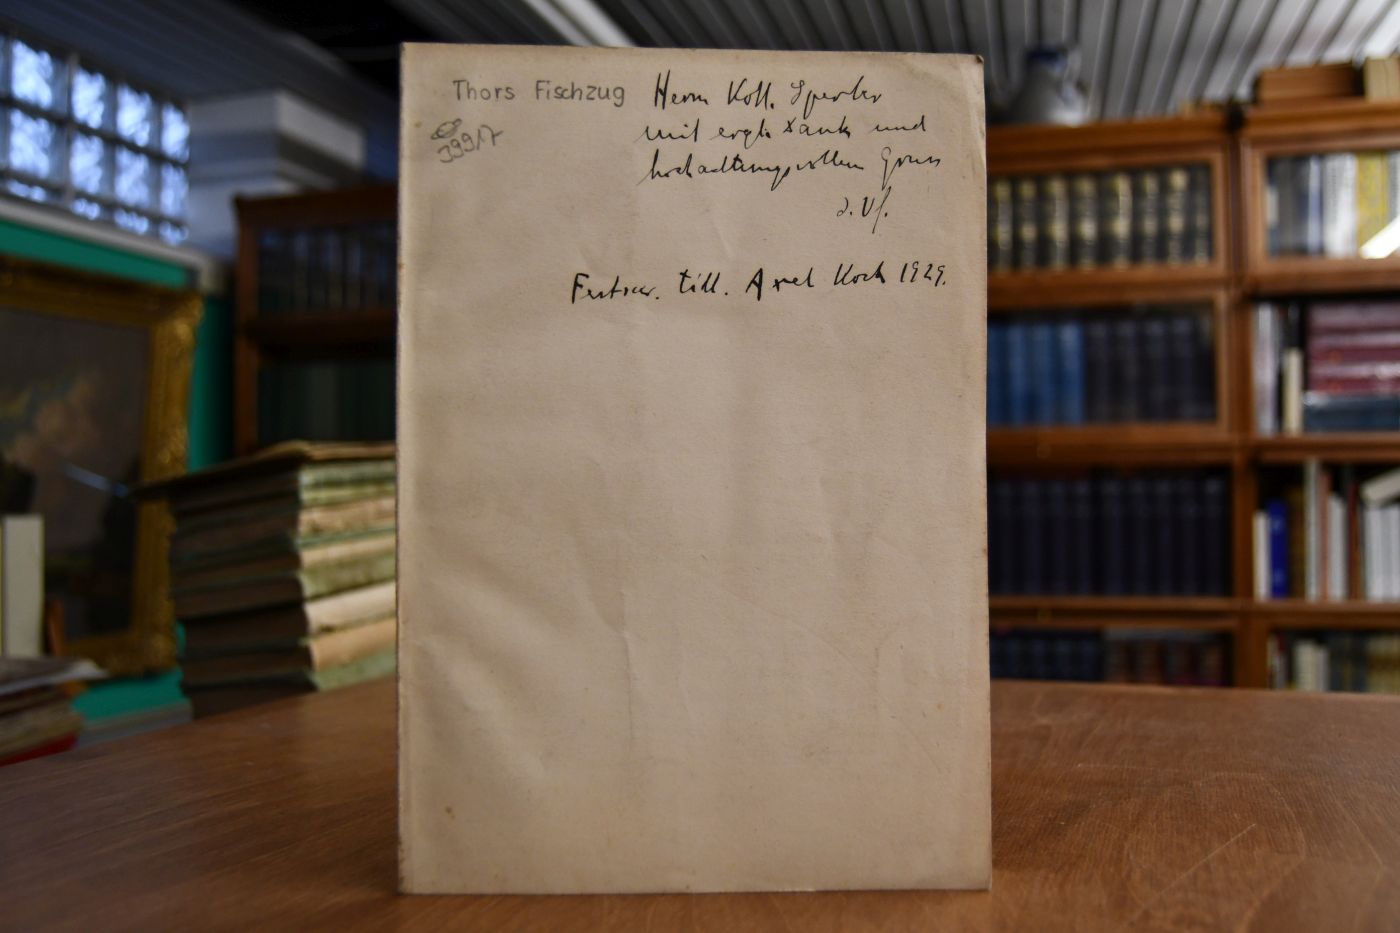 Thors Fischzug
399/17
Herrn Koll. Sperber
mit ergb. Dank und
hochachtungsvollem Gruss
d. Vf.
Festskr. till. Axel Kock 1929.